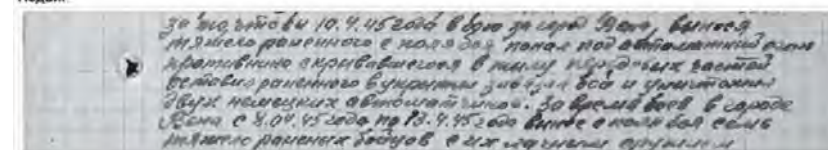 за то, что он 10.4.45 года в бою за город Вена, вынося
тяжело раненного с поля боя попал под автоматный огонь
противника скрывавшегося в тылу передовых частей
оставив раненного в укрытии завязал бой и уничтожил
двух немецких автоматчиков. За время боев в городе
Вена с 8.04.45 года по 13.4.45 года вынес с поля боя семь
тяжело раненых бойцов с их личным оружием